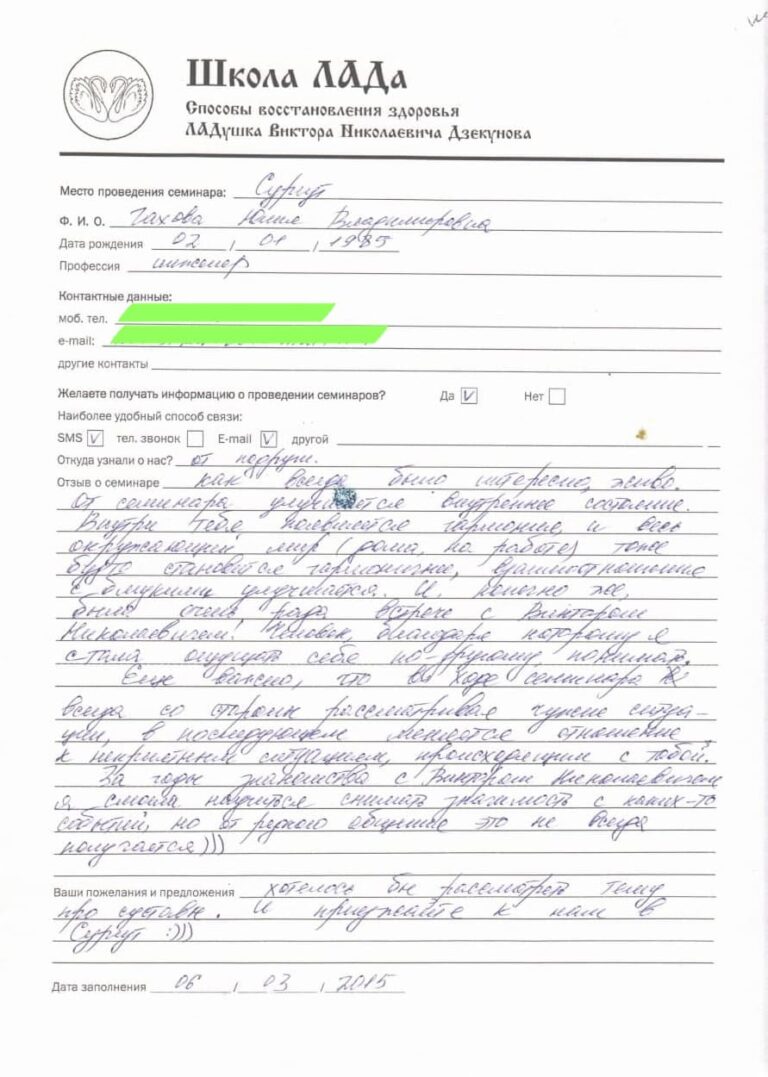 Школа ЛАДа
Способы восстановления здоровья
ЛАДушка Виктора Николаевича Дзекунова
Место проведения семинара: Сургут
Ф. И. О. Гахова Юлия Владимировна
Дата рождения 02 , 01 , 1985
Профессия инженер
Контактные данные:
моб. тел.
e-mail:
другие контакты
Желаете получать информацию о проведении семинаров? Да V Нет
Наиболее удобный способ связи:
SMS V тел. звонок E-mail V другой
Откуда узнали о нас? от подруги.
Отзыв о семинаре как всегда было интересно, живо.
От семинара улучшается внутреннее состояние.
Внутри тебя появляется гармония, и весь
окружающий мир (дома, на работе) тоже
будто становится гармоничнее, взаимоотношения
с близкими улучшаются. И, конечно же,
была очень рада встрече с Виктором
Николаевичем! Человек, благодаря которому я
стала ощущать себя по-другому, понимать.
Еще важно, что в ходе семинара
всегда со сторон рассматривая чужие ситуа-
ции, в последующем меняется отношение
к неприятным ситуациям, происходящим с тобой.
За годы знакомства с Виктором Николаевичем
я смогла научиться снимать значимость с каких-то
событий, но от редкого общения это не всегда
получается)))
Ваши пожелания и предложения хотелось бы рассмотреть тему
про суставы. И приезжайте к нам в
Сургут :)))
Дата заполнения 06 , 03 , 2015